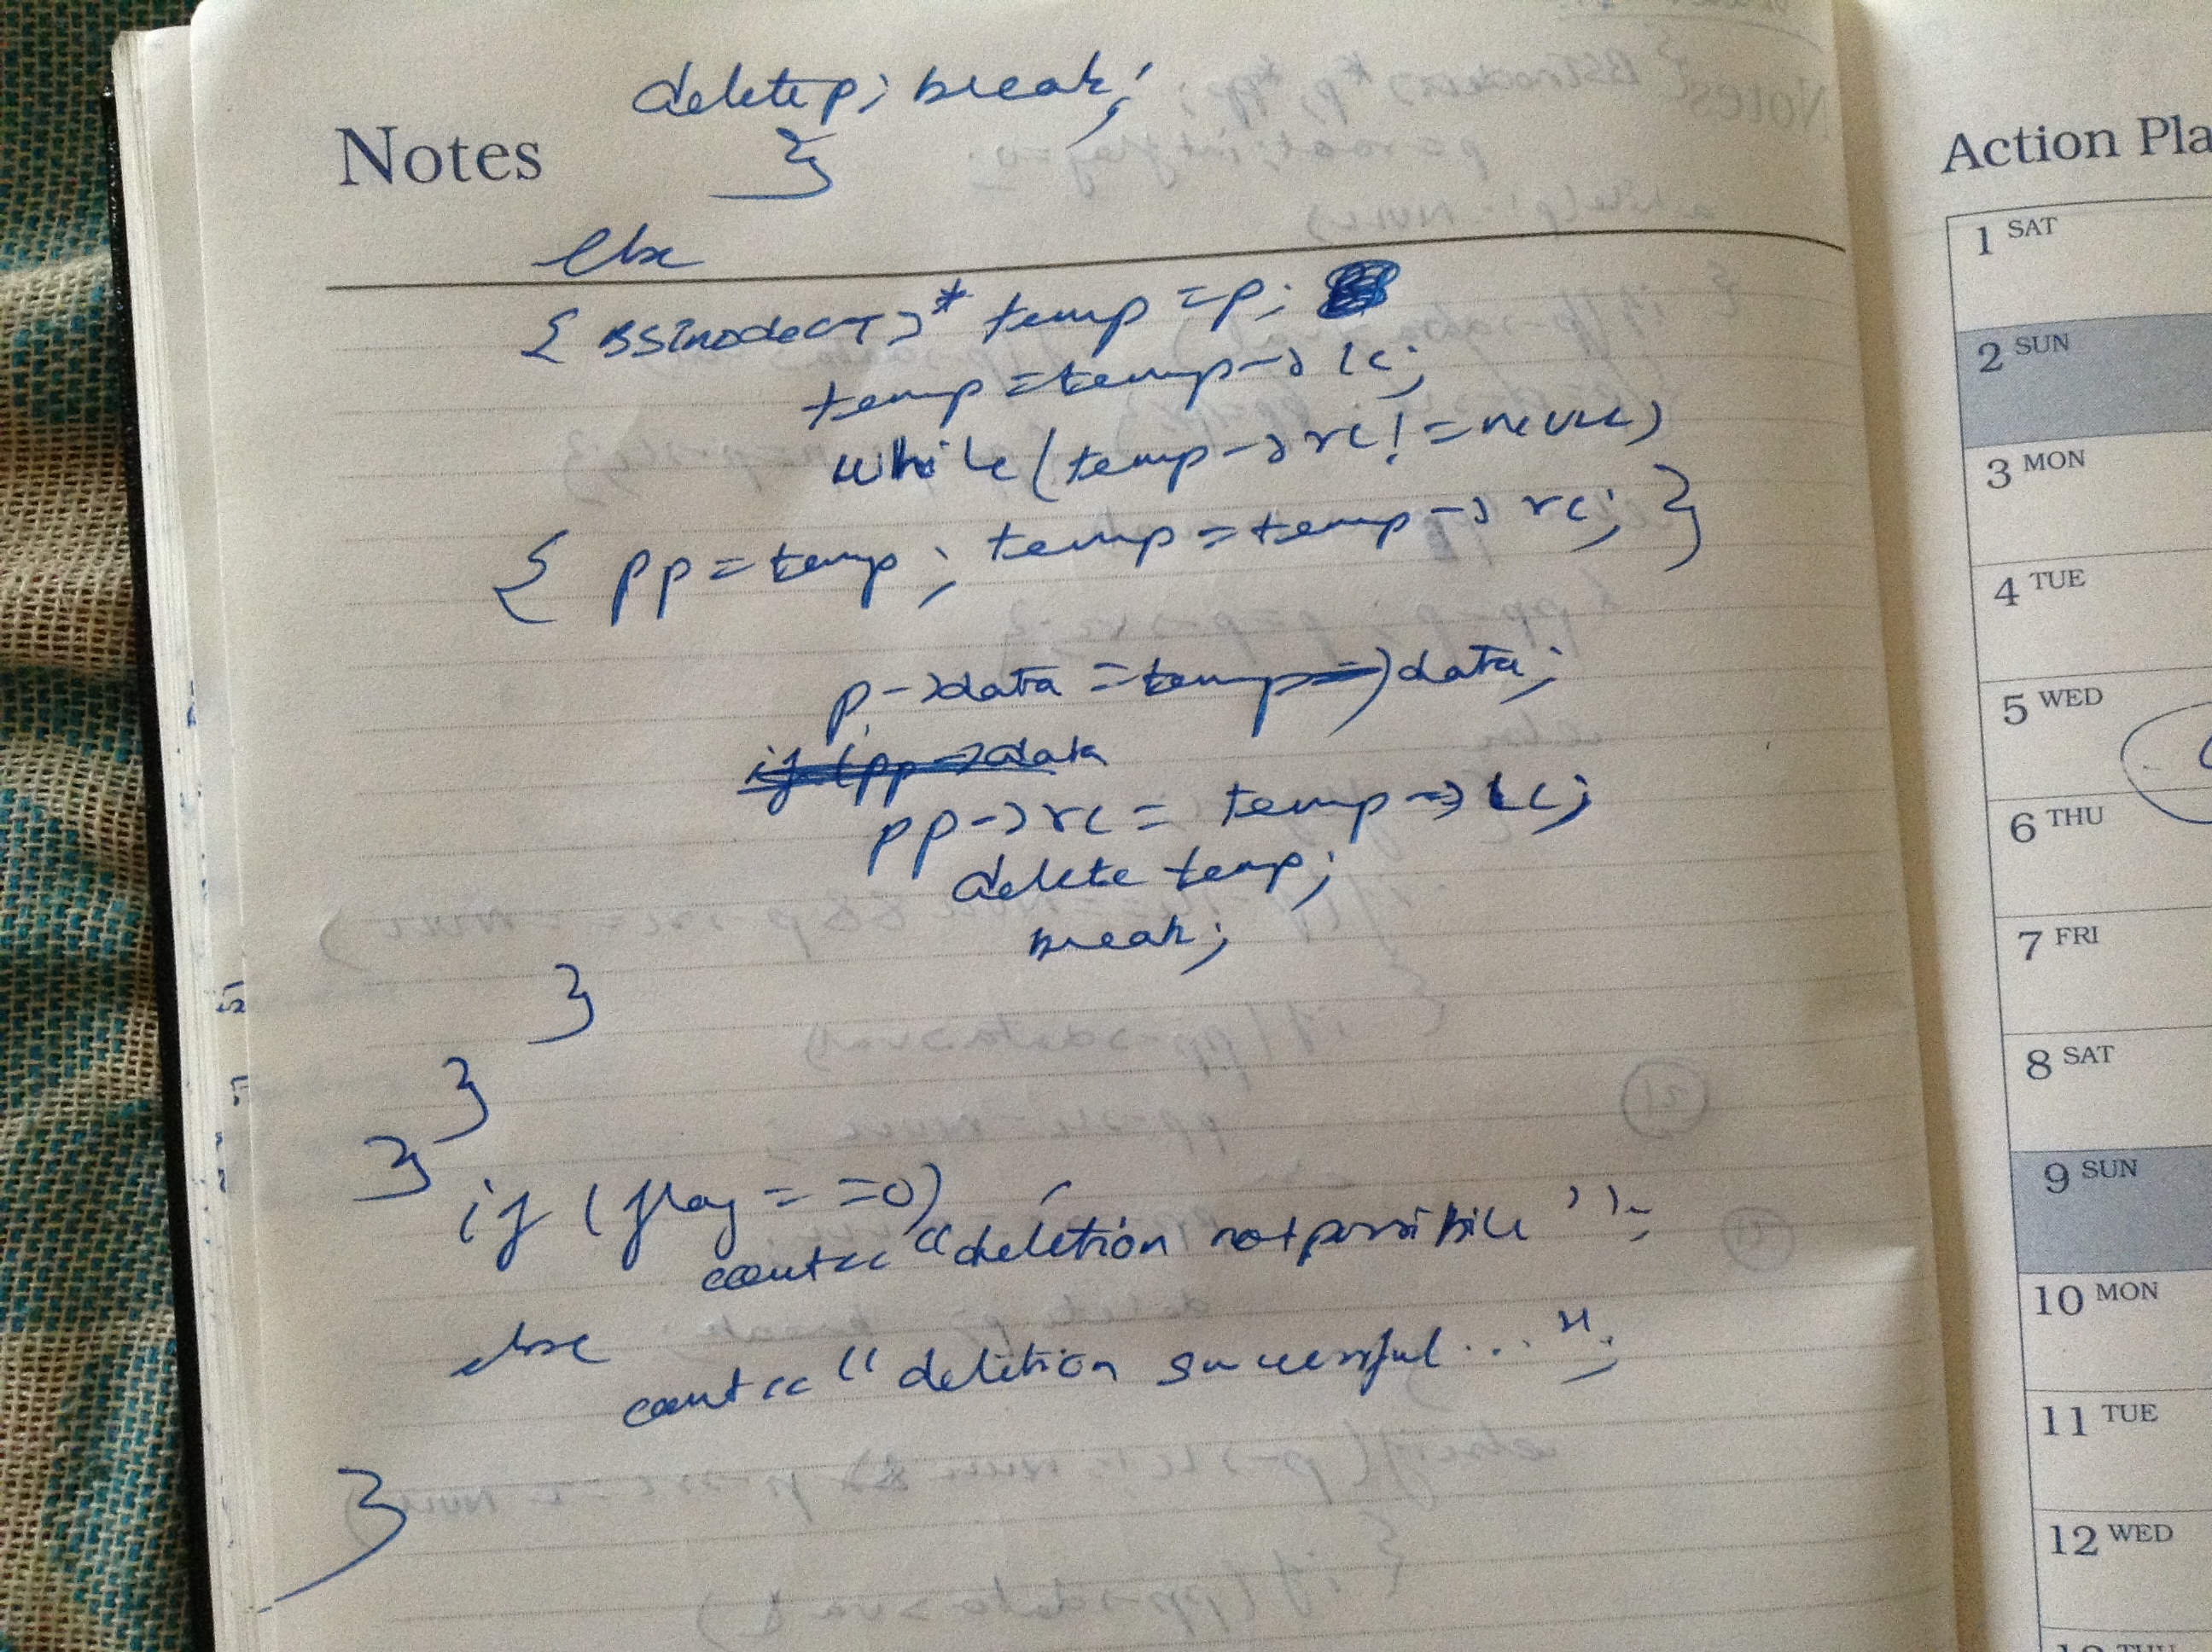 delete p; break;
Notes
}
else
{ BSTnode<T>* temp = p;
temp = temp->lc;
while (temp->rc != NULL)
{ pp = temp; temp = temp->rc; }
p->data = temp->data;
if (pp->data
pp->rc = temp->lc;
delete temp;
break;
}
}
}
if (flag == 0)
cout<< "deletion not possible";
else
cout<< "deletion successful...";
}
Action Pla
1 SAT
2 SUN
3 MON
4 TUE
5 WED
6 THU
7 FRI
8 SAT
9 SUN
10 MON
11 TUE
12 WED